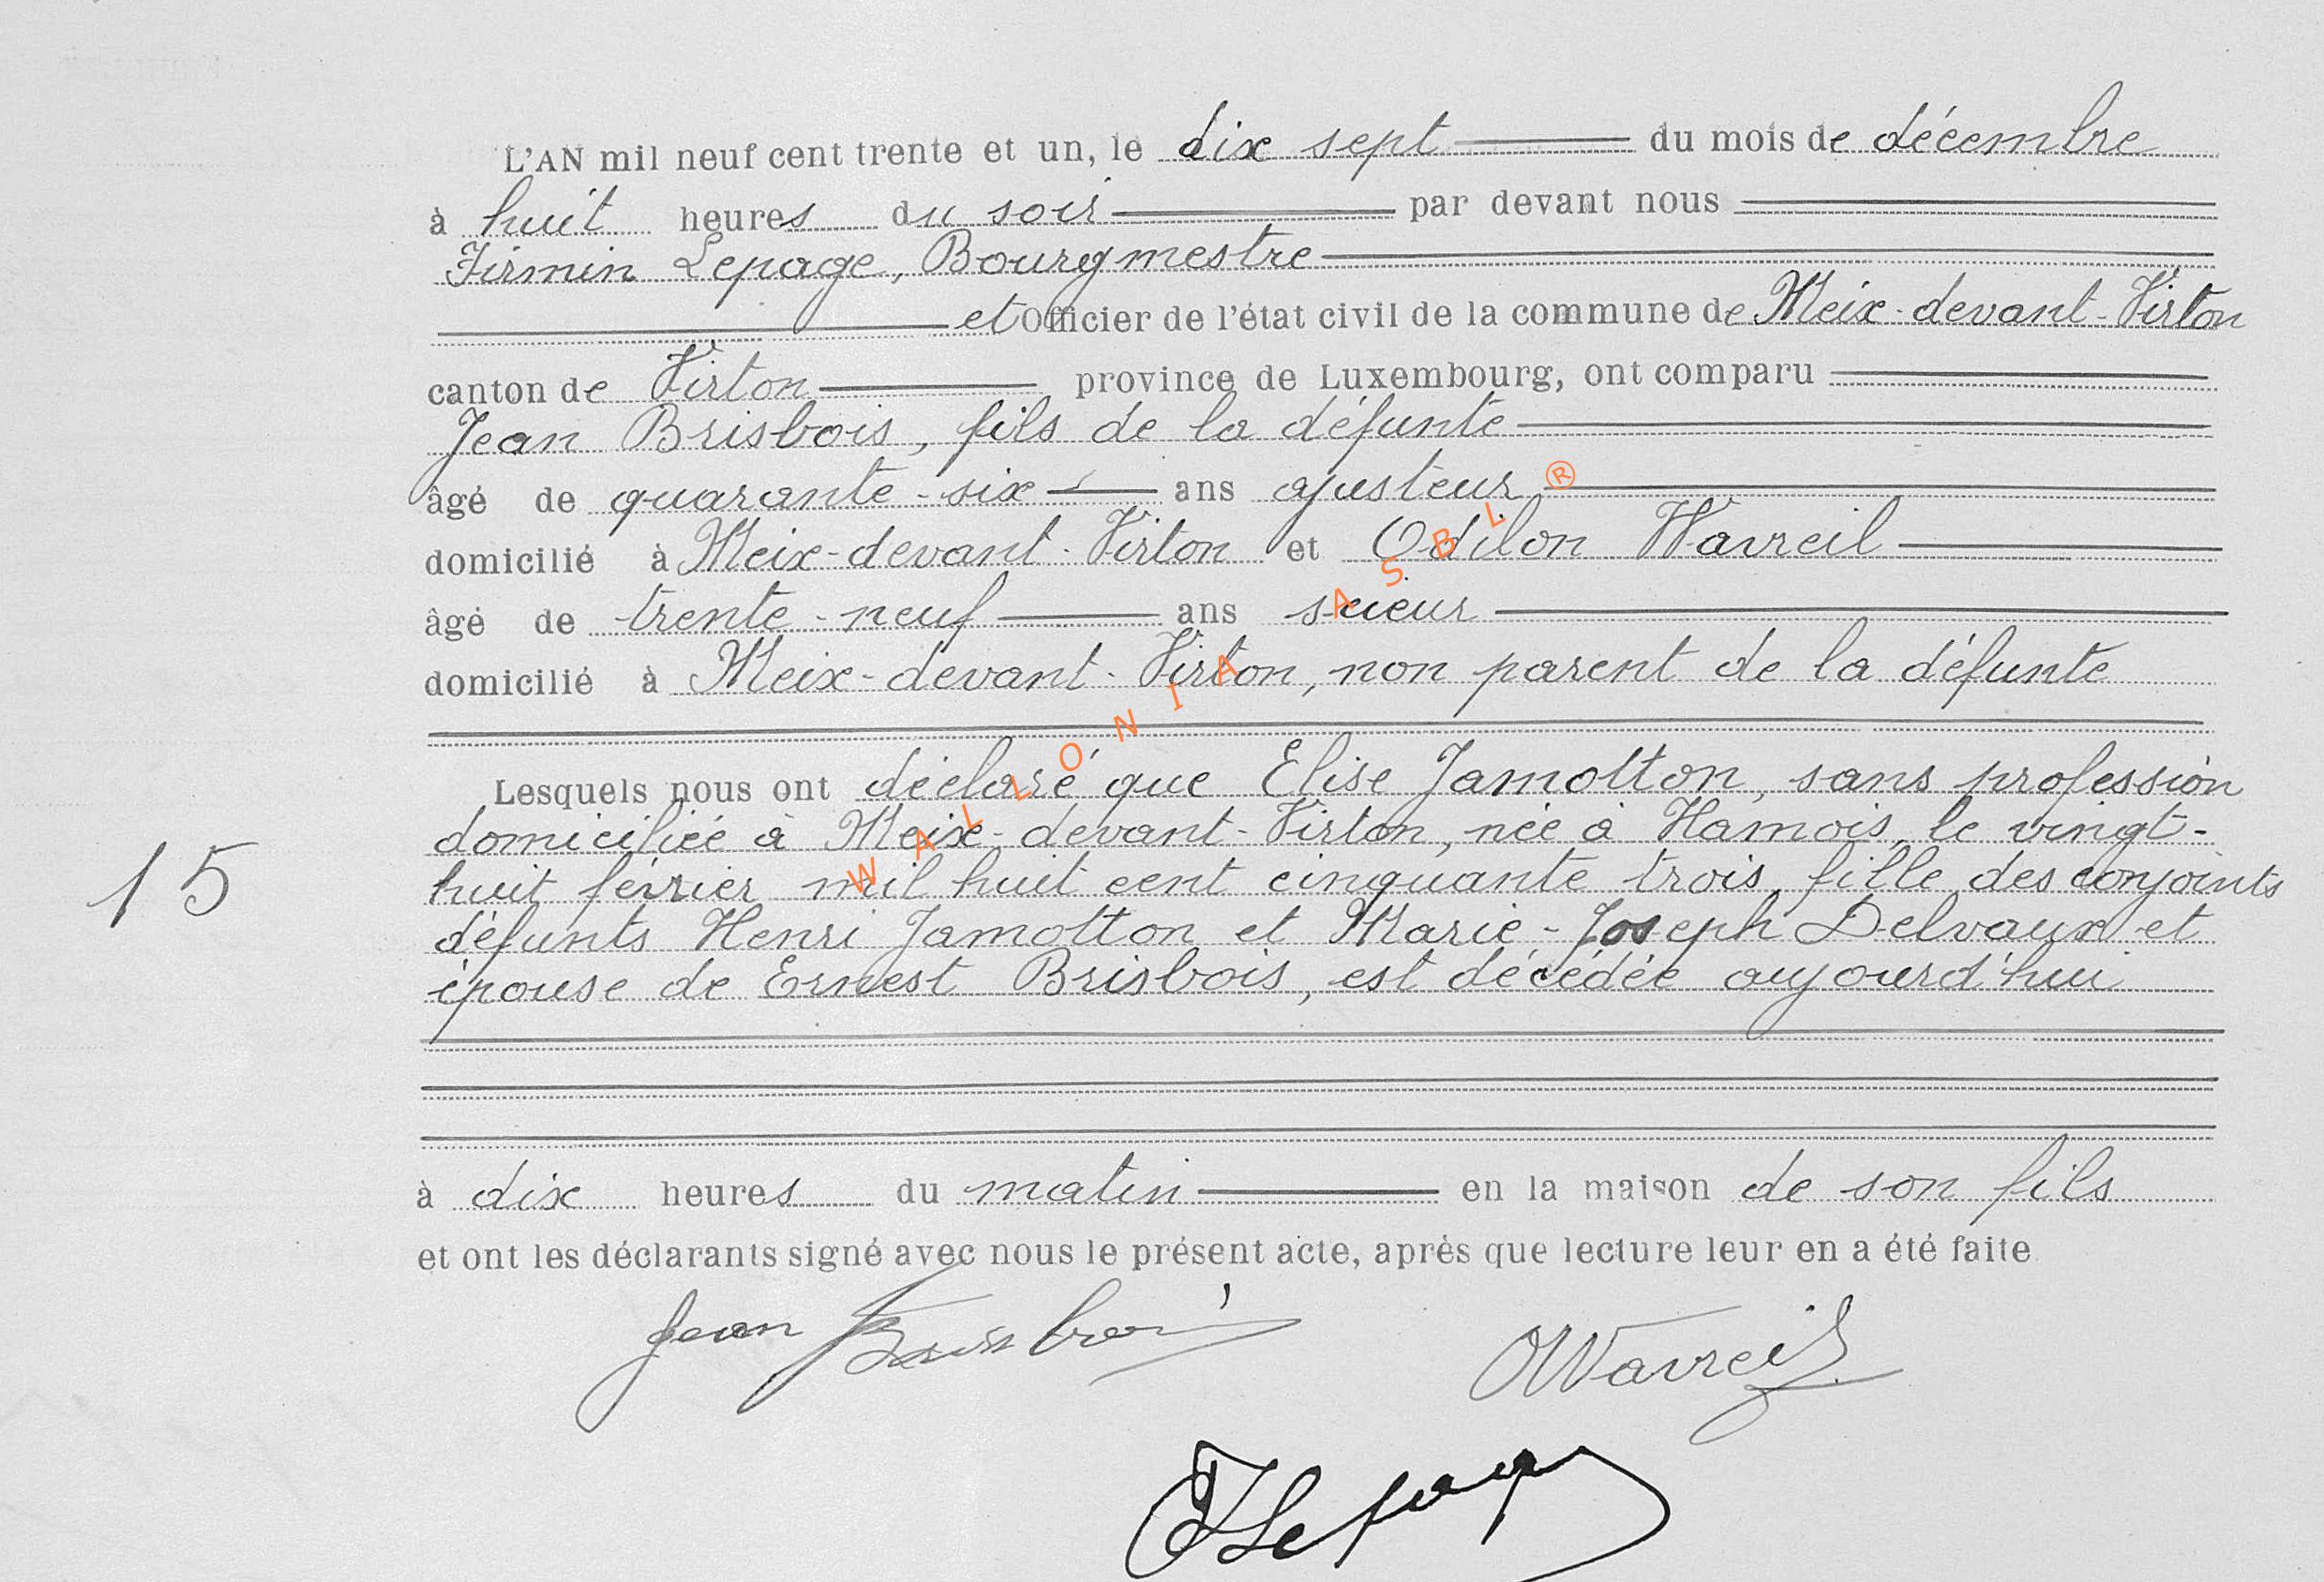 L'AN mil neuf cent trente et un, le dix sept du mois de décembre
à huit heures du soir par devant nous
Firmin Lepage, Bourgmestre
et Officier de l'état civil de la commune de Meix-devant-Virton
canton de Virton province de Luxembourg, ont comparu
Jean Brisbois, fils de la défunte
âgé de quarante-six ans ajusteur
domicilié à Meix-devant-Virton et Odilon Wavreil
âgé de trente-neuf ans scieur
domicilié à Meix-devant-Virton, non parent de la défunte
Lesquels nous ont déclaré que Elise Jamotton, sans profession
domiciliée à Meix-devant-Virton, née à Hamois, le vingt-
15
huit février mil huit cent cinquante trois, fille des conjoints
défunts Henri Jamotton et Marie-Joseph Delvaux et
épouse de Ernest Brisbois, est décédée aujourd'hui
à dix heures du matin en la maison de son fils
et ont les déclarants signé avec nous le présent acte, après que lecture leur en a été faite
Jean Brisbois
OWavreil
FLepage
WALLONIA ASBL ®